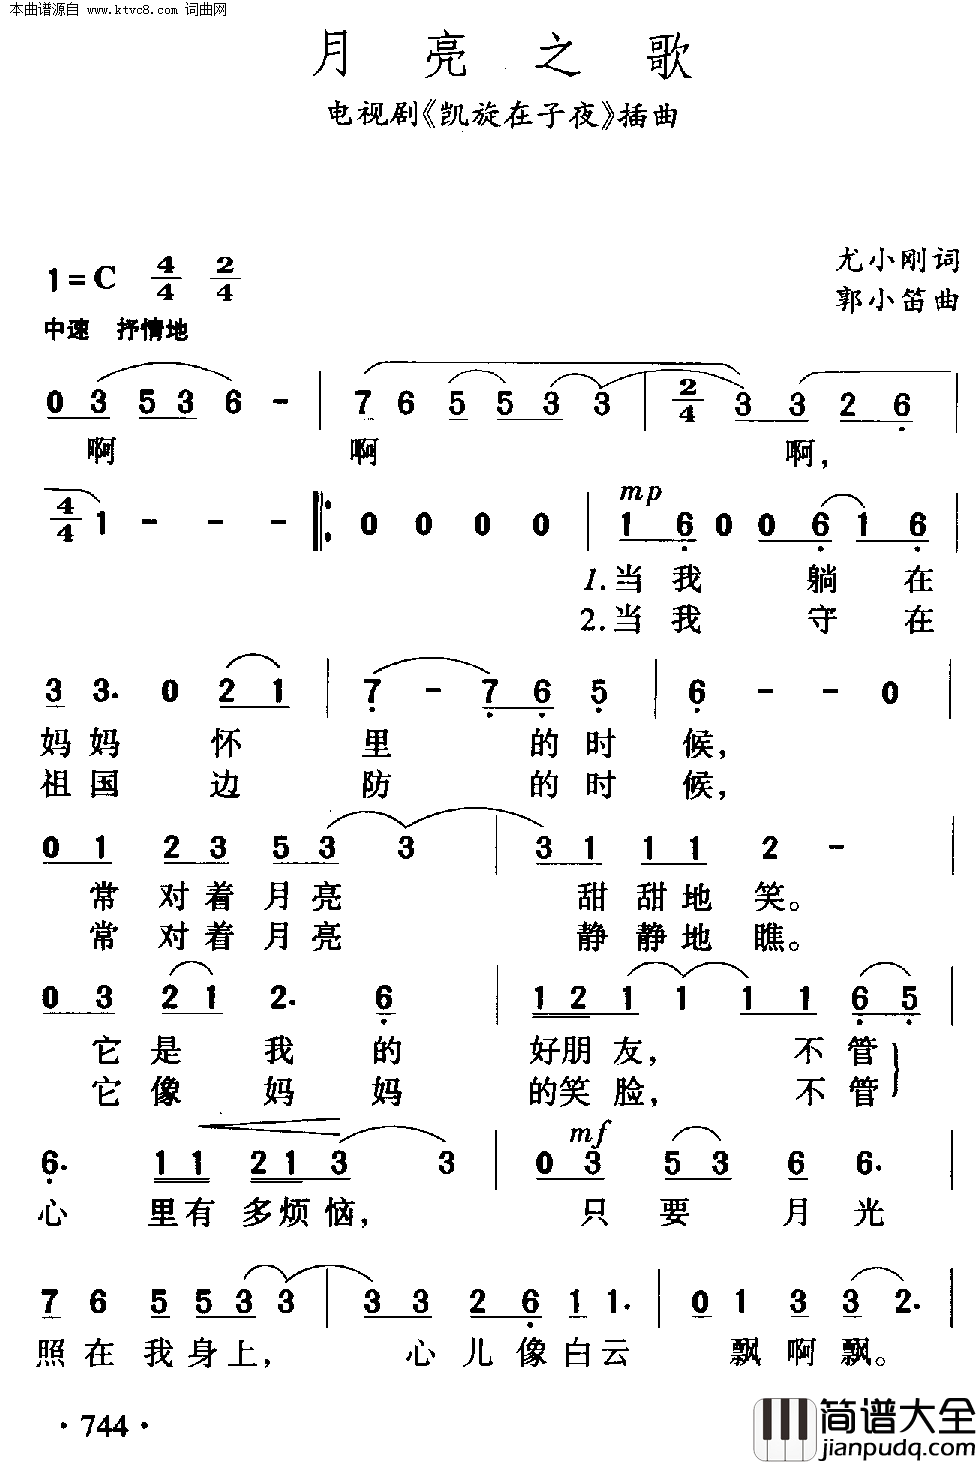 本曲谱源自 www.ktvc8.com 词曲网
月亮之歌
电视剧《凯旋在子夜》插曲
尤小刚词
1=C 4/4 2/4
郭小笛曲
中速 抒情地
0 3 5 3 6 - | 7 6 5 5 3 3 | 2/4 3 3 2 6 |
啊 啊 啊,
4/4 1 - - - |: 0 0 0 0 | 1 6 0 0 6 1 6 |
mp
1.当我 躺 在
2.当我 守 在
3 3. 0 2 1 | 7 - 7 6 5 | 6 - - 0 |
妈妈 怀 里 的时 候,
祖国 边 防 的时 候,
0 1 2 3 5 3 3 | 3 1 1 1 2 - |
常 对着月亮 甜 甜地 笑。
常 对着月亮 静 静地 瞧。
0 3 2 1 2. 6 | 1 2 1 1 1 1 6 5 |
它 是 我 的 好朋 友, 不管
它 像 妈 妈 的笑 脸, 不管
mf
6. 1 1 2 1 3 3 | 0 3 5 3 6 6. |
心 里有 多烦恼, 只 要 月 光
7 6 5 5 3 3 | 3 3 2 6 1 1. | 0 1 3 3 2. |
照在我身上, 心儿像白云 飘啊飘。
·744·
简谱大全
jianpudq.com